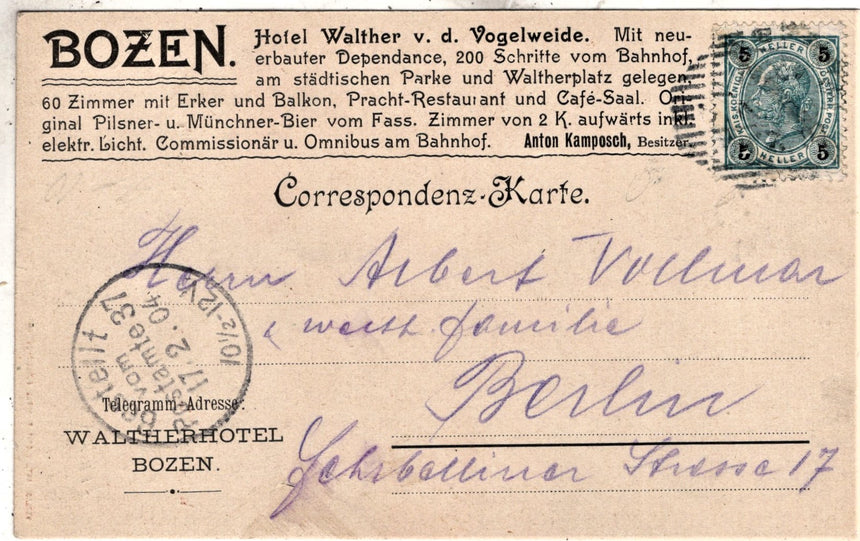 BOZEN.
Hotel Walther v. d. Vogelweide. Mit neu-
erbauter Dependance, 200 Schritte vom Bahnhof,
am städtischen Parke und Waltherplatz gelegen,
60 Zimmer mit Erker und Balkon, Pracht-Restaurant und Café-Saal. Ori-
ginal Pilsner- u. Münchner-Bier vom Fass. Zimmer von 2 K. aufwärts inkl.
elektr. Licht. Commissionär u. Omnibus am Bahnhof. Anton Kamposch, Besitzer.
5 HELLER 5
5 HELLER 5
Correspondenz-Karte.
Herrn Albert Vollmar
& werth. Familie
Berlin
Fehrbelliner Strasse 17
Bestellt
vom
Postamte 37
17.2.04
10½-12V
Telegramm-Adresse:
WALTHERHOTEL
BOZEN.